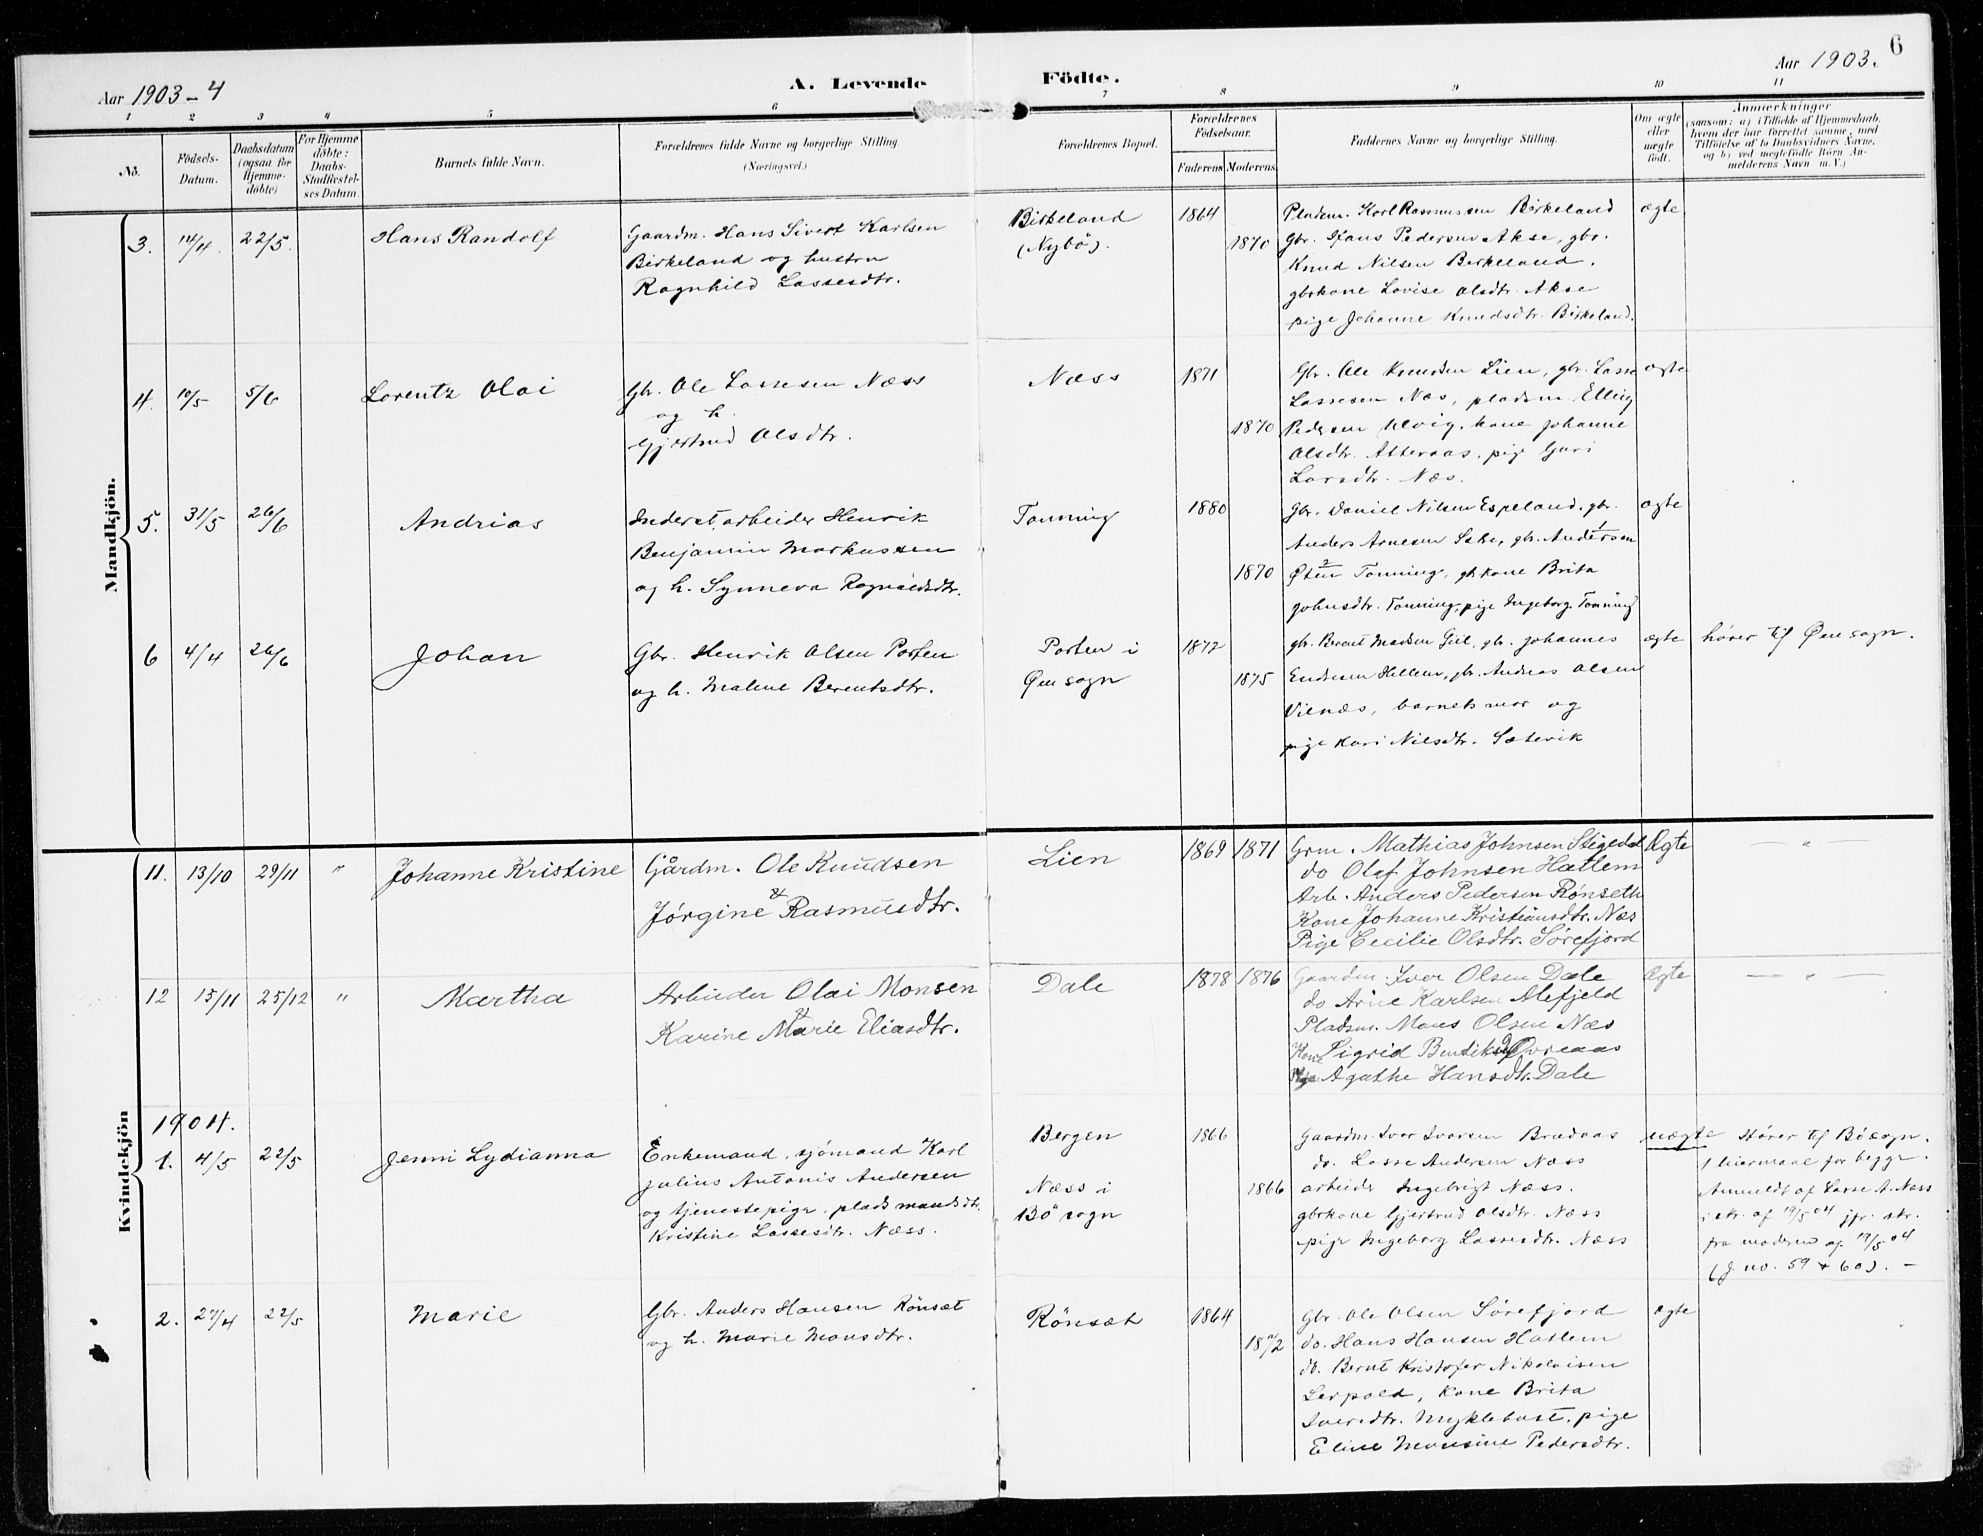 6
Aar 1903-4
A. Levende
Födte.
Aar 1903.
1 2 3 4 5 6 7 8 9 10 11
No.
Födsels-
Datum.
Daabsdatum
(ogsaa for
Hjemme-
döbte)
For Hjemme
döbte:
Daabs-
Stadfæstel-
ses Datum.
Barnets fulde Navn.
Forældrenes fulde Navne og borgerlige Stilling
(Næringsvei.)
Forældrenes Bopæl.
Forældrenes
Födselsaar.
Faderens
Moderens
Faddernes Navne og borgerlige Stilling.
Om ægte
eller
uægte
født.
Anmærkninger
(saasom: a) i Tilfælde af Hjemmedaab,
hvem der har forrettet samme, med
Tilföielse af to Daabsvidners Navne,
og b) ved uægtefödte Børn An-
melderens Navn m. V.)
Mandkjön.
3. 14/4. 22/5. Hans Randolf
Gaardm. Hans Sivert Karlsen
Birkeland og hustru
Ragnhild Lassesdtr.
Birkeland
(Nybö).
1864
1870
Pladsm. Karl Rasmussen Birkeland
Gbr. Hans Pedersen Akse, gbr.
Knud Nilsen Birkeland,
gbrkone Lovise Olsdtr. Akse
pige Johanne Knudsdtr. Birkeland.
ægte
4. 10/5 5/6 Lorentz Olai
Gbr. Ole Lassesen Næss
og h.
Gjertrud Olsdtr.
Næss
1871
1870
Gbr. Ole Knudsen Lien, gbr. Lasse
Lassesen Næs, pladsm. Elling
Pedersen Ulvig, kone Johanne
Olsdtr. Atteraas, pige Guri
Larsdtr. Næs.
ægte
5. 31/5 26/6 Andrias
Inderst arbeider Henrik
Benjamin Markussen
og h. Synneva Ragnaldsdtr.
Tonning
1880
1870
Gbr. Daniel Nilsen Espeland, gbr.
Anders Arnesen, gbr. Andersen
Tonning, gbkone Brita
Johnsdtr. Tonning, pige Ingeborg Tonning
ægte
6 4/4 26/6 Johan
Gbr. Henrik Olsen Porten
og h. Malene Berentsdtr.
Porten i
Öen sogn
1872
1875
gbr. Berent Madsen Gul, gbr. Johannes
Endresen Hellem, gbr. Andreas Olsen
Vilnæs, barnets mor og
pige Kari Nilsdtr. Sætevik
ægte
hører til Øen sogn.
Kvindekjön
11. 13/10 29/11 " Johanne Kristine
Gårdm. Ole Knudsen
&
Jørgine Rasmusdtr.
Lien
1869 1871
Grm. Mathias Johnsen Stigedal
do Olaf Johnsen Hatlem
Arb. Anders Pedersen Rønseth
Kone Johanne Kristiansdtr. Næs
Pige Cecilie Olsdtr. Sørefjord
Ægte
— " —
12 15/11 25/12 " Martha
Arbeider Olai Monsen
&
Karine Marie Eliasdtr.
Dale
1878 1876
Gaardm. Iver Olsen Dale
do Arne Karlsen Mefjeld
Pladsm. Mons Olsen Næs
Kone Sigrid Bendiksd Øvreaas
Pige Agathe Hansdtr. Dale
Ægte
— " —
1904.
1. 4/5 22/5 Jenni Lydianna
Enkemand, sjömand Karl
Julius Antonis Andersen
og tjenestepige, pladsmandsdt.
Kristine Lassesdtr. Næss.
Bergen
Næss i
Bö sogn
1866
1866
Gaardm. Iver Iversen Brædvas
do. Lasse Andersen Næss
arbeider Ingebrigt Næss.
gbrkone Gjertrud Olsdtr. Næss
pige Ingeborg Lassesdtr. Næss
uægte
Hører til Bö sogn.
1 leiermaal for begge.
Anmeldt af Lasse A. Næss
i skr. af 19/5 04 jfr. skr.
fra moderen af 19/5 04
(J. no. 59 + 60). –
2. 27/4 22/5 Marie
Gbr. Anders Hansen Rönset
og h. Marie Monsdtr.
Rönsæt
1864
1872
Gbr. Ole Olsen Sørefjord
do. Hans Hansen Hatlem
do. Bernt Kristofer Nikolaisen
Leepold, kone Brita
Iversdtr. Myklebust, pige
Eline Monsine Pedersdtr.
ægte